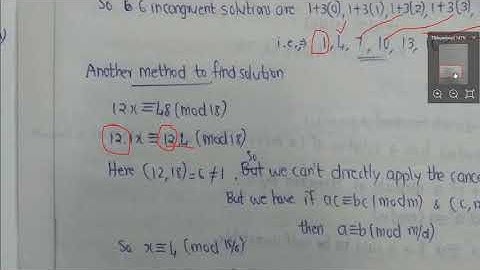 So 6 6 incongruent solution are 1+3(0), 1+3(1), 1+3(2), 1+3(3),
i.e., 1, 4, 7, 10, 13,
Another method to find solution
12x ≡ 48 (mod 18)
12.x ≡ 12.4 (mod 18)
Here (12,18) = 6 ≠ 1. So But we can't directly apply the cance
But we have if ac ≡ bc (mod m) & (c, m
then a ≡ b (mod m/d)
So x ≡ 4 (mod 18/6)